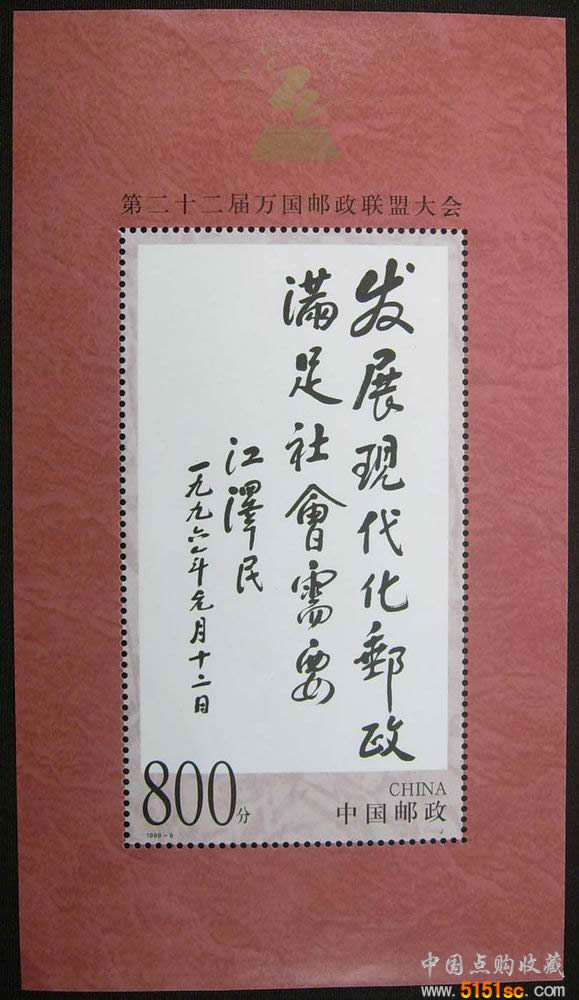 第二十二届万国邮政联盟大会
发展现代化郵政
满足社會需要
江澤民
一九九六年元月十二日
800分
CHINA
中国邮政
1999-9
J
中国点购收藏
www.5151sc.com